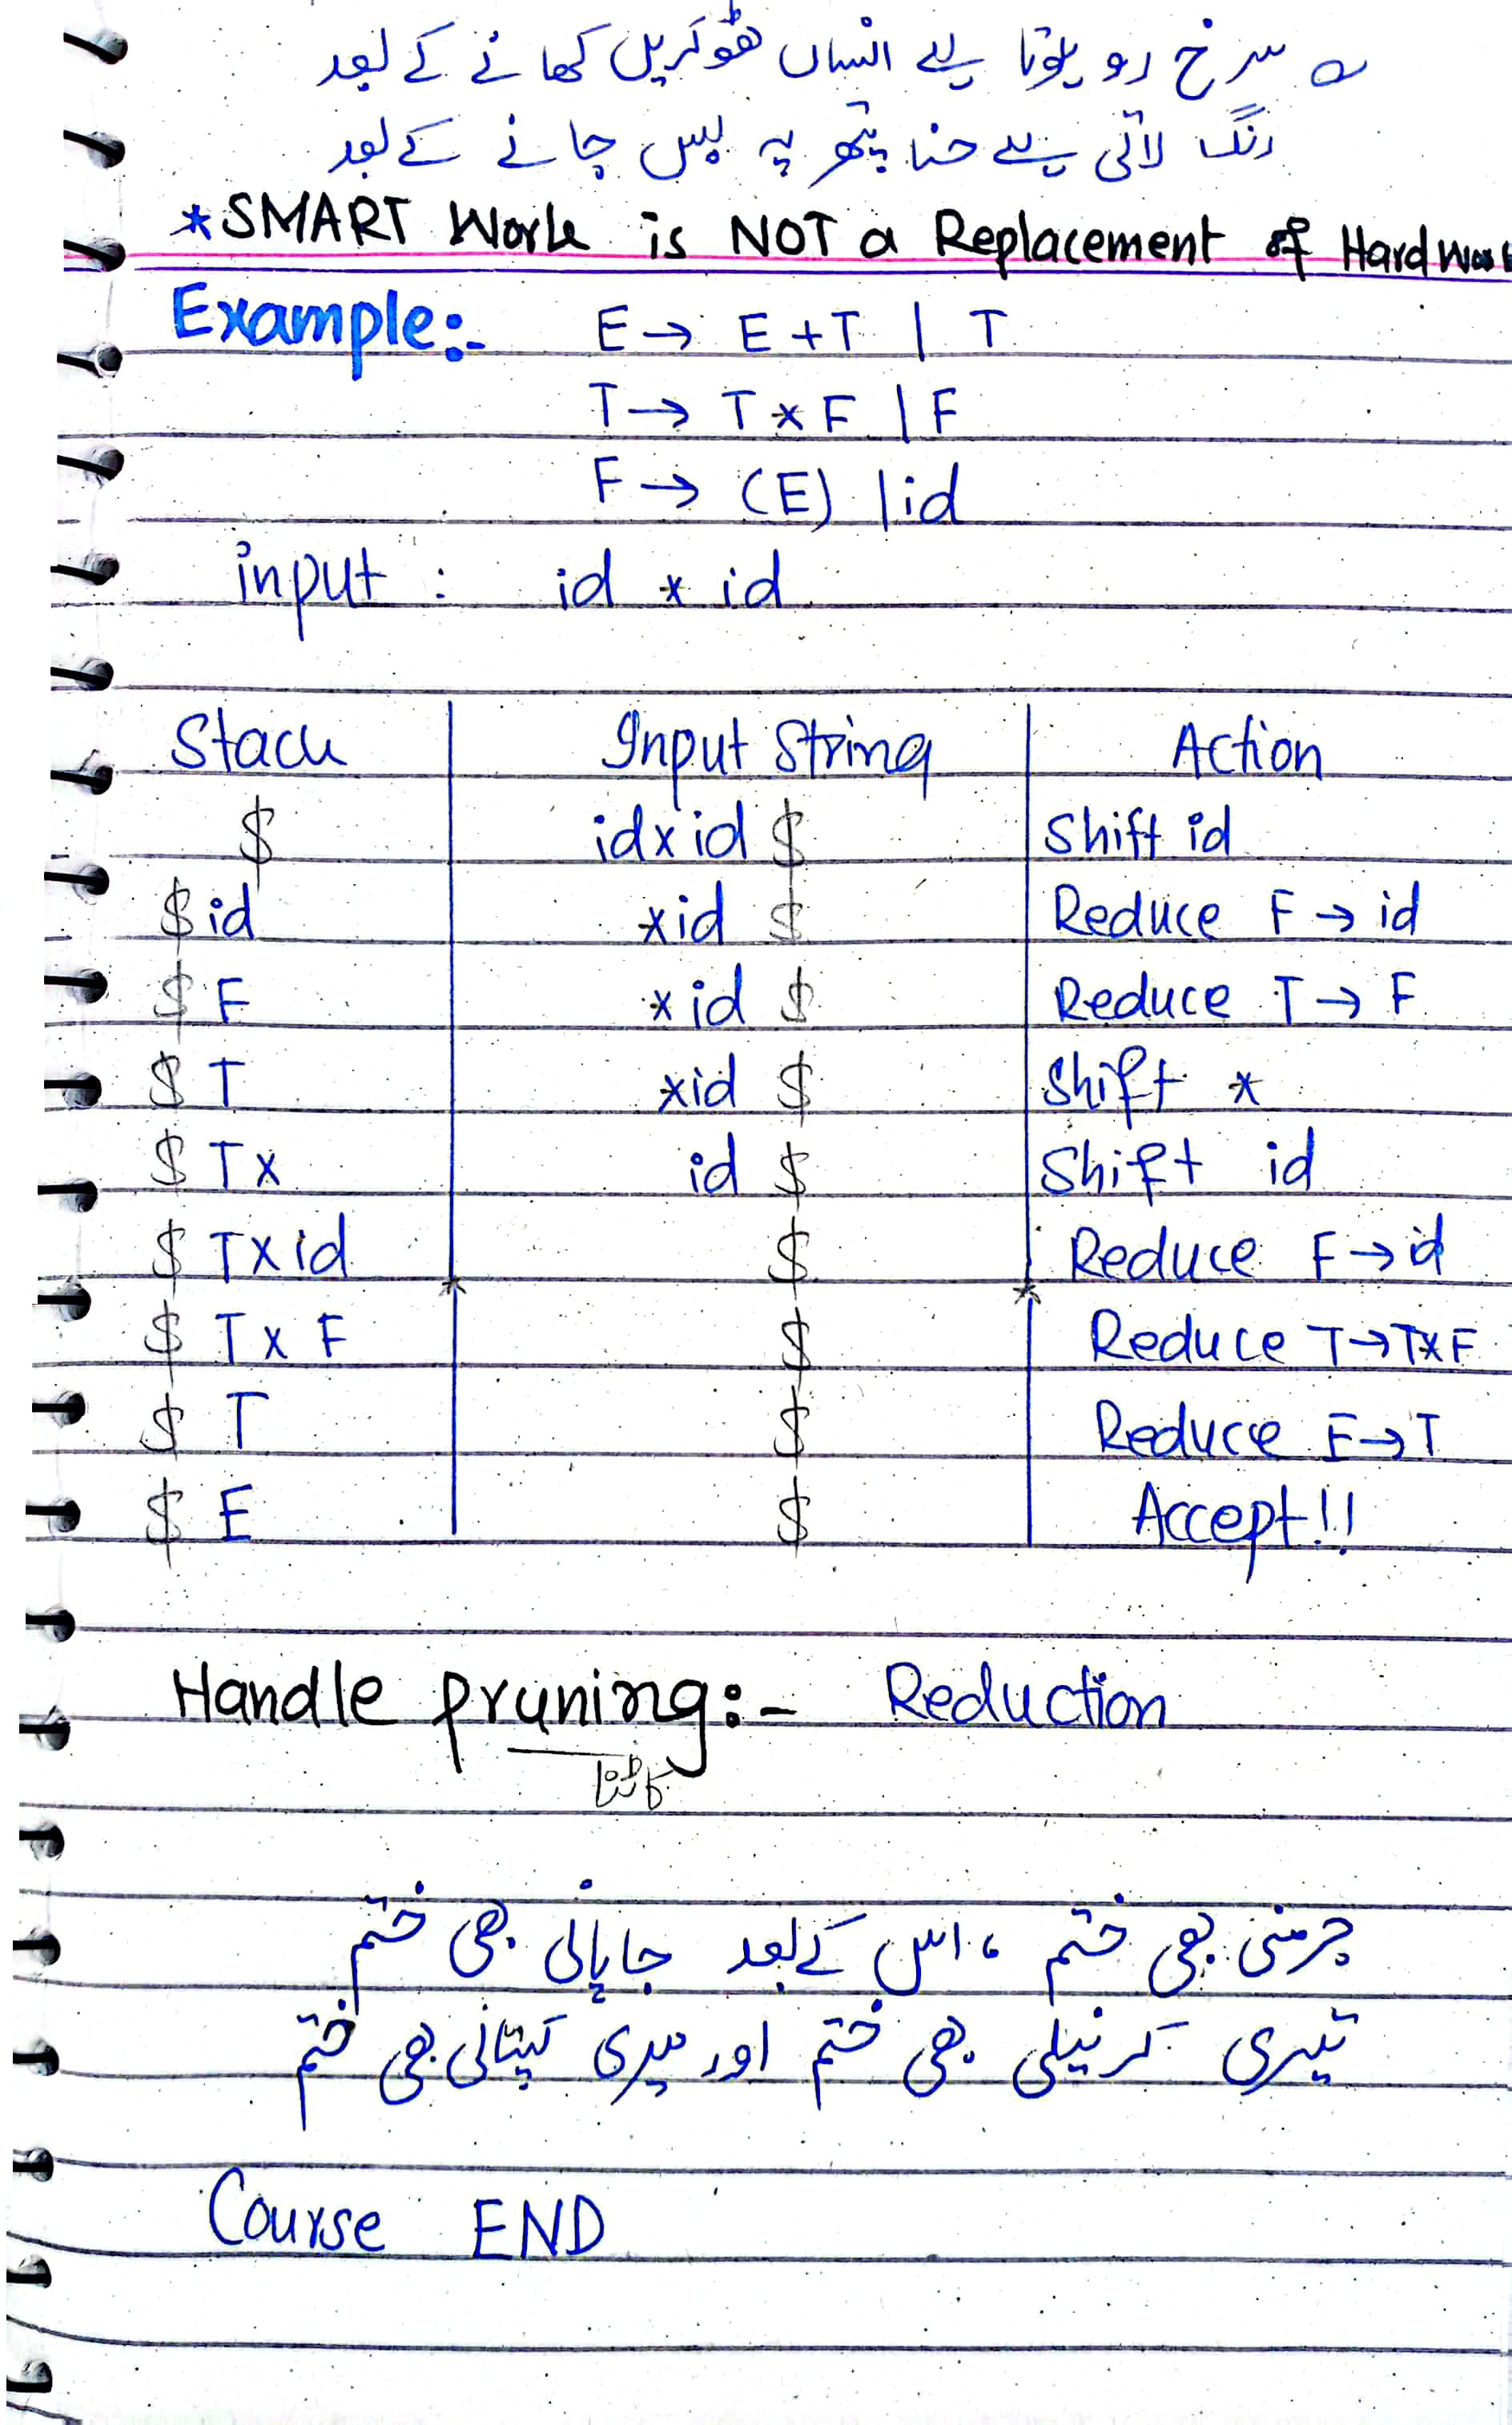 سرخ رو ہوتا ہے انساں ٹھوکریں کھانے کے بعد
رنگ لاتی ہے حنا پتھر پہ پس جانے کے بعد
*SMART Work is NOT a Replacement of Hardwork
Example:- E → E + T | T
T → T * F | F
F → (E) | id
input : id * id
Stack Input String Action
$ id x id $ Shift id
$ id x id $ Reduce F → id
$ F * id $ Reduce T → F
$ T x id $ Shift *
$ T x id $ Shift id
$ T x id $ Reduce F → id
$ T x F $ Reduce T → T x F
$ T $ Reduce E → T
$ E $ Accept!!
Handle pruning:- Reduction
کاٹنا
جرمنی بھی ختم ، اس کے بعد جاپانی بھی ختم
تیری کرنیلی بھی ختم اور میری کپتانی بھی ختم
Course END